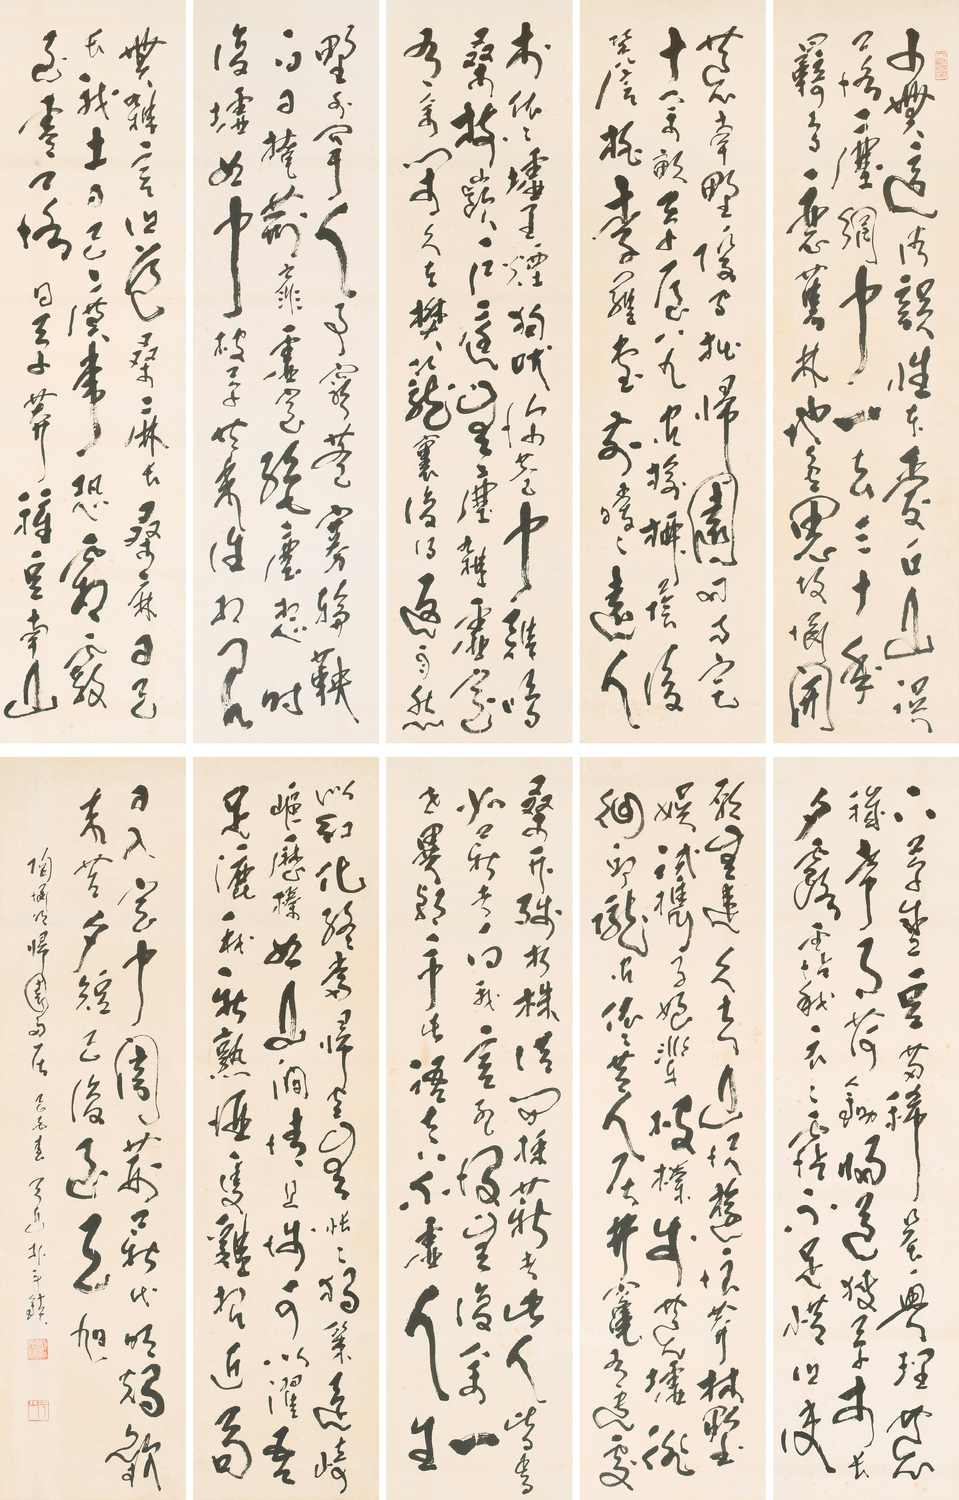 少無適俗韻性本愛丘山誤
落塵網中一去三十年
羈鳥戀舊林池魚思故淵開
荒南野際守拙歸園田方宅
十餘畝草屋八九間榆柳蔭後
簷桃李羅堂前曖曖遠人
村依依墟里煙狗吠深巷中雞鳴
桑樹巔戶庭無塵雜虛室
有餘閒久在樊籠裏復得返自然
野外罕人事窮巷寡輪鞅
白日掩荊扉虛室絕塵想時
復墟曲中披草共來往相見
無雜言但道桑麻長桑麻日已
長我土日已廣常恐霜霰
至零落同草莽種豆南山
下草盛豆苗稀晨興理荒
穢帶月荷鋤歸道狹草木長
夕露沾我衣衣沾不足惜但使
願無違久去山澤遊浪莽林野
娛試攜子姪輩披榛步荒墟徘
徊丘隴間依依昔人居井竈有遺處
桑竹殘朽株借問採薪者此人皆焉
如薪者向我言死沒無復餘一
世異朝市此語真不虛人生
似幻化終當歸空無悵悵獨策還崎
嶇歷榛曲山澗清且淺可以濯吾
足漉我新熟酒隻雞招近局
日入室中闇荊薪代明燭歡
來苦夕短已復至天旭
陶淵明歸園田居